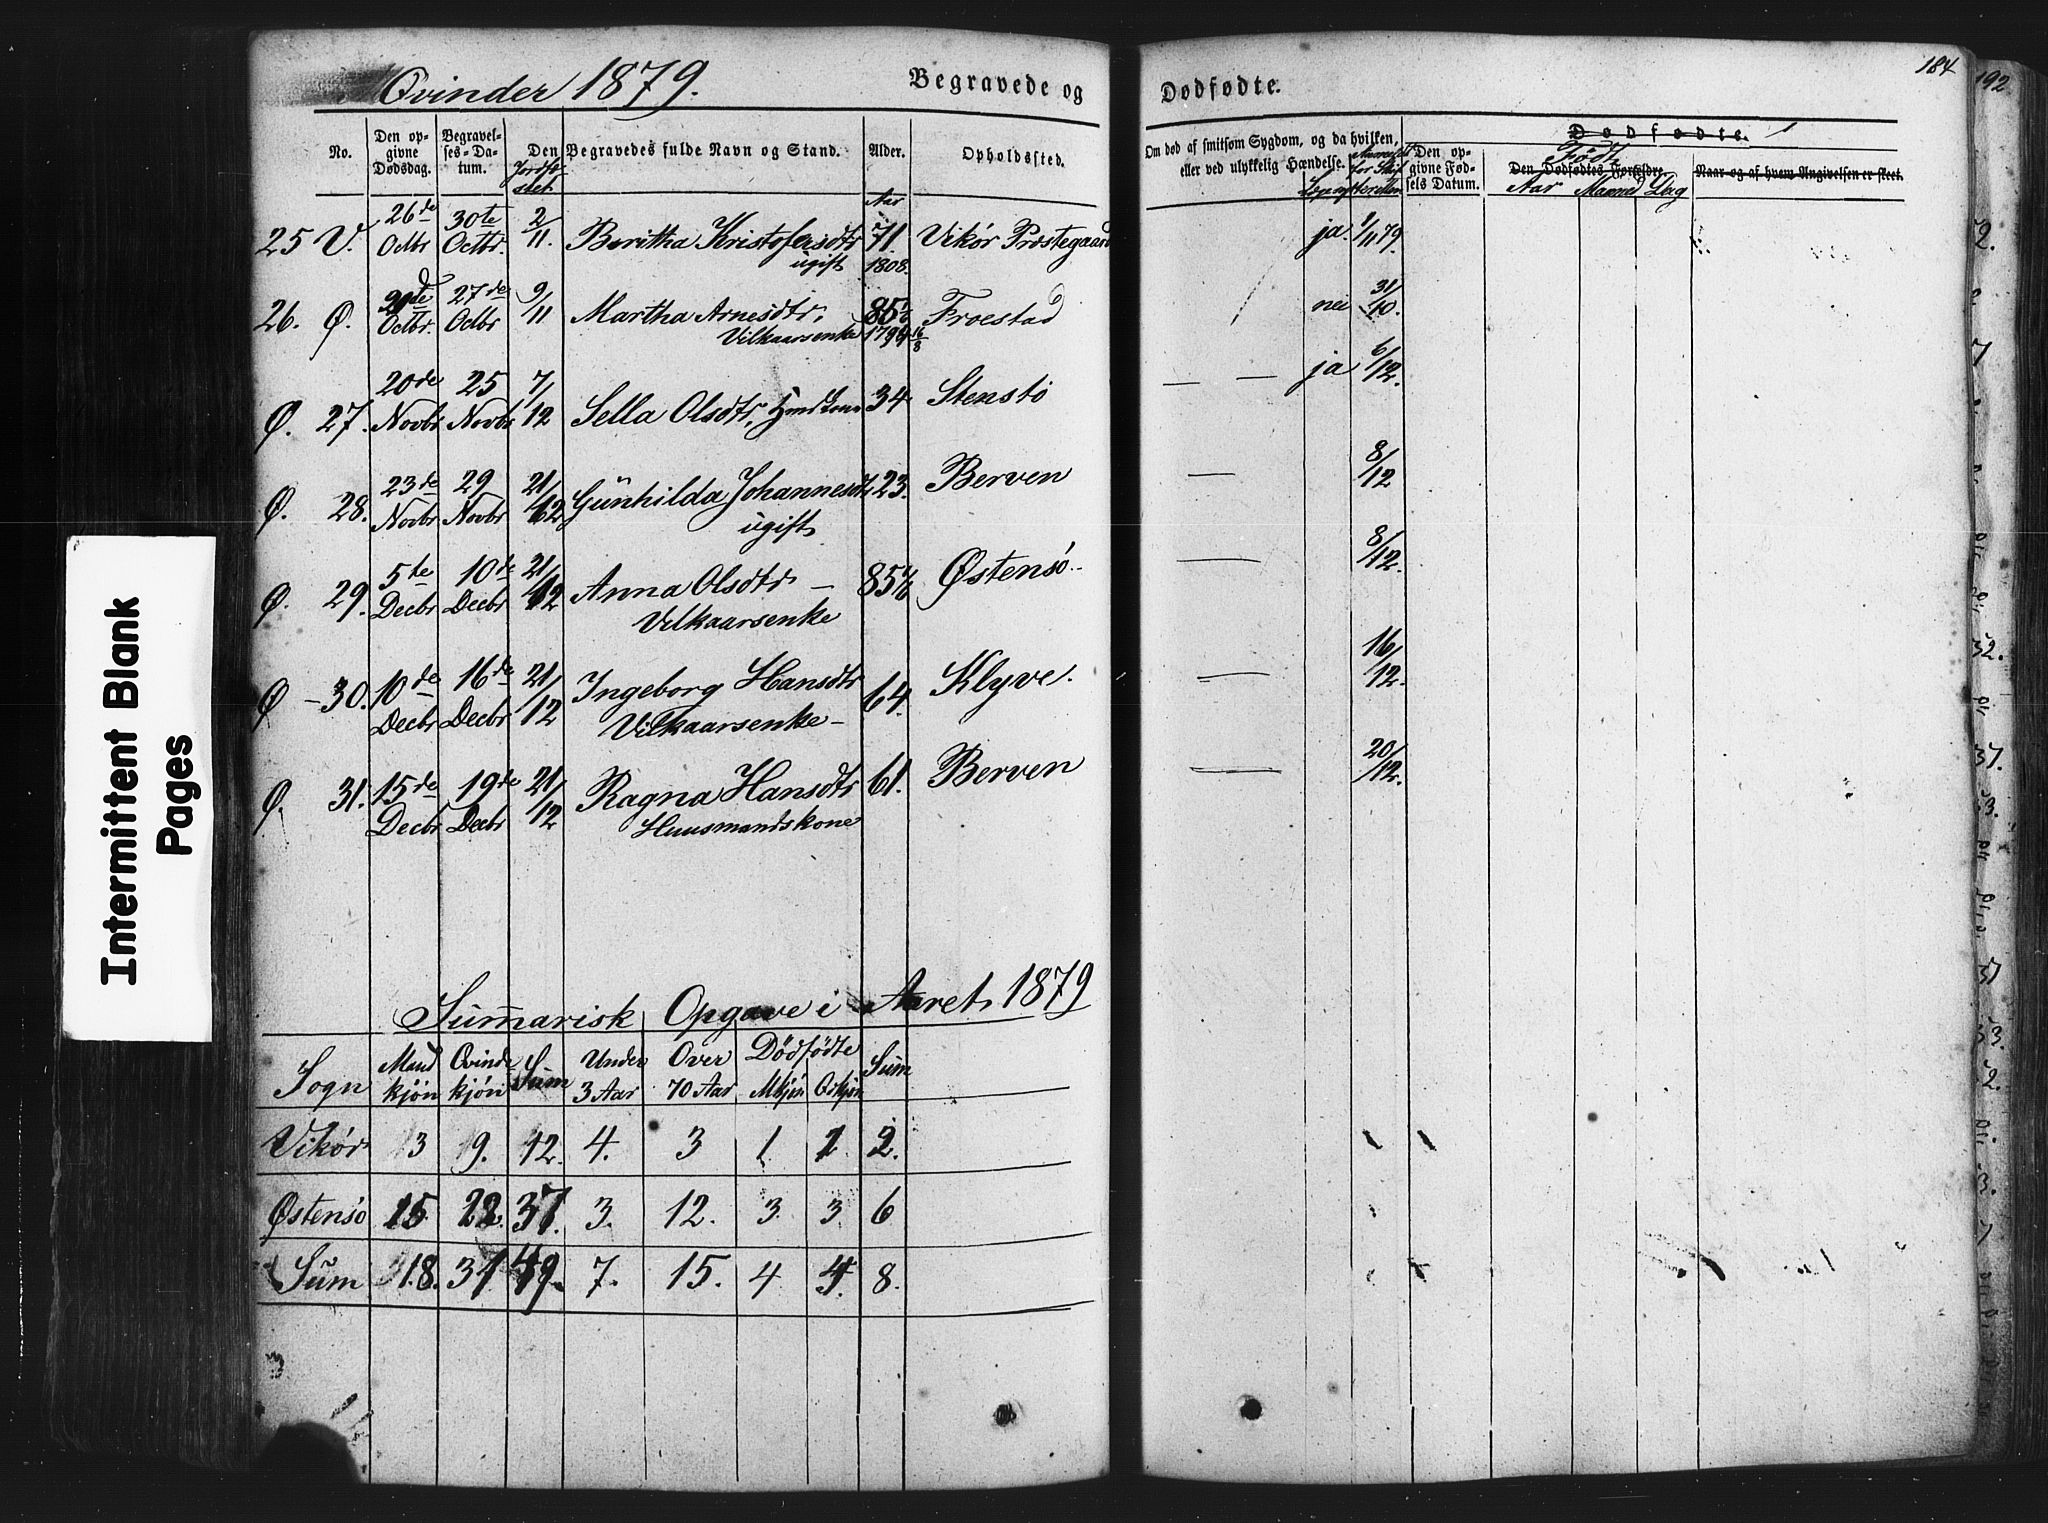 Qvinder 1879.
Begravede og
Dødfødte.
184
192
No.
Den opgivne Dødsdag.
Begravelses-Datum.
Den Jordfæstet
Begravedes fulde Navn og Stand.
Alder.
Opholdssted.
Om død af smitsom Sygdom, og da hvilken, eller ved ulykkelig Hændelse.
Den opgivne Fødsels Datum.
Dødfødte.
Født
Den Dødfødtes Forældre.
Aar Maaned Dag
Naar og af hvem Angivelsen er skeet.
Aar
25 V. 26de Octbr 30te Octbr. 2/11. Beritha Kristofersdtr 71 Vikør Præstegaard ja. 1/11 79
ugift 1808.
26. Ø. Octbr. 27de Octbr 9/11 Martha Arnesdtr. 85½ Froestad nei 31/10.
Vilkaarsenke 16/8
Ø. 27. 20de Novbr 25 Novbr 7/12 Sella Olsdtr, 34 Stenstø — — ja 6/12.
Ø. 28. 23de Novbr 29 Novbr 21/12 Gunhilda Johannesdtr 23. Berven — 8/12
ugift
Ø. 29. 5te Decbr 10de Decbr 21/12 Anna Olsdtr — 85½ Østensø — 8/12.
Vilkaarsenke
Ø — 30. 10de Decbr 16de Decbr 21/12 Ingeborg Hansdtr 64. Klyve. — 16/12.
Vilkaarsenke —
Ø. 31. 15de Decbr 19de Decbr 21/12 Ragna Hansdtr 61. Berven — 20/12.
Huusmandskone
Intermittent Blank
Pages
Summarisk Opgave i Aaret 1879
Sogn Mandkjøn Qvindekjøn Sum Under 3 Aar Over 70 Aar Dødfødte Mkjøn Qvkjøn Sum
Vikør 3 9. 12. 4. 3 1. 1. 2.
Østensø 15 22. 37. 3. 12. 3 3 6
Sum 18. 31 49. 7. 15. 4 4. 8.